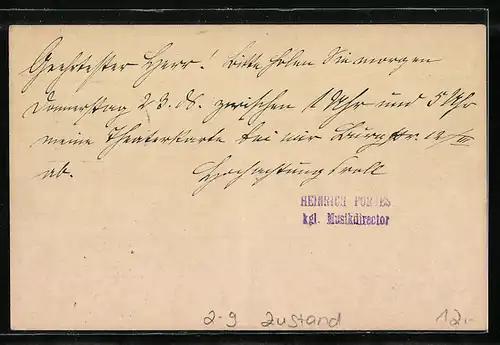 Geehrtester Herr! Bitte holen Sie morgen
Donnerstag 23. ds. zwischen 1 Uhr und 5 Uhr
meine Theaterkarte bei mir Burgstr. 12/III.
ab. Hochachtungsvoll
HEINRICH PORGES
kgl. Musikdirector
2-9 Zustand 12.-